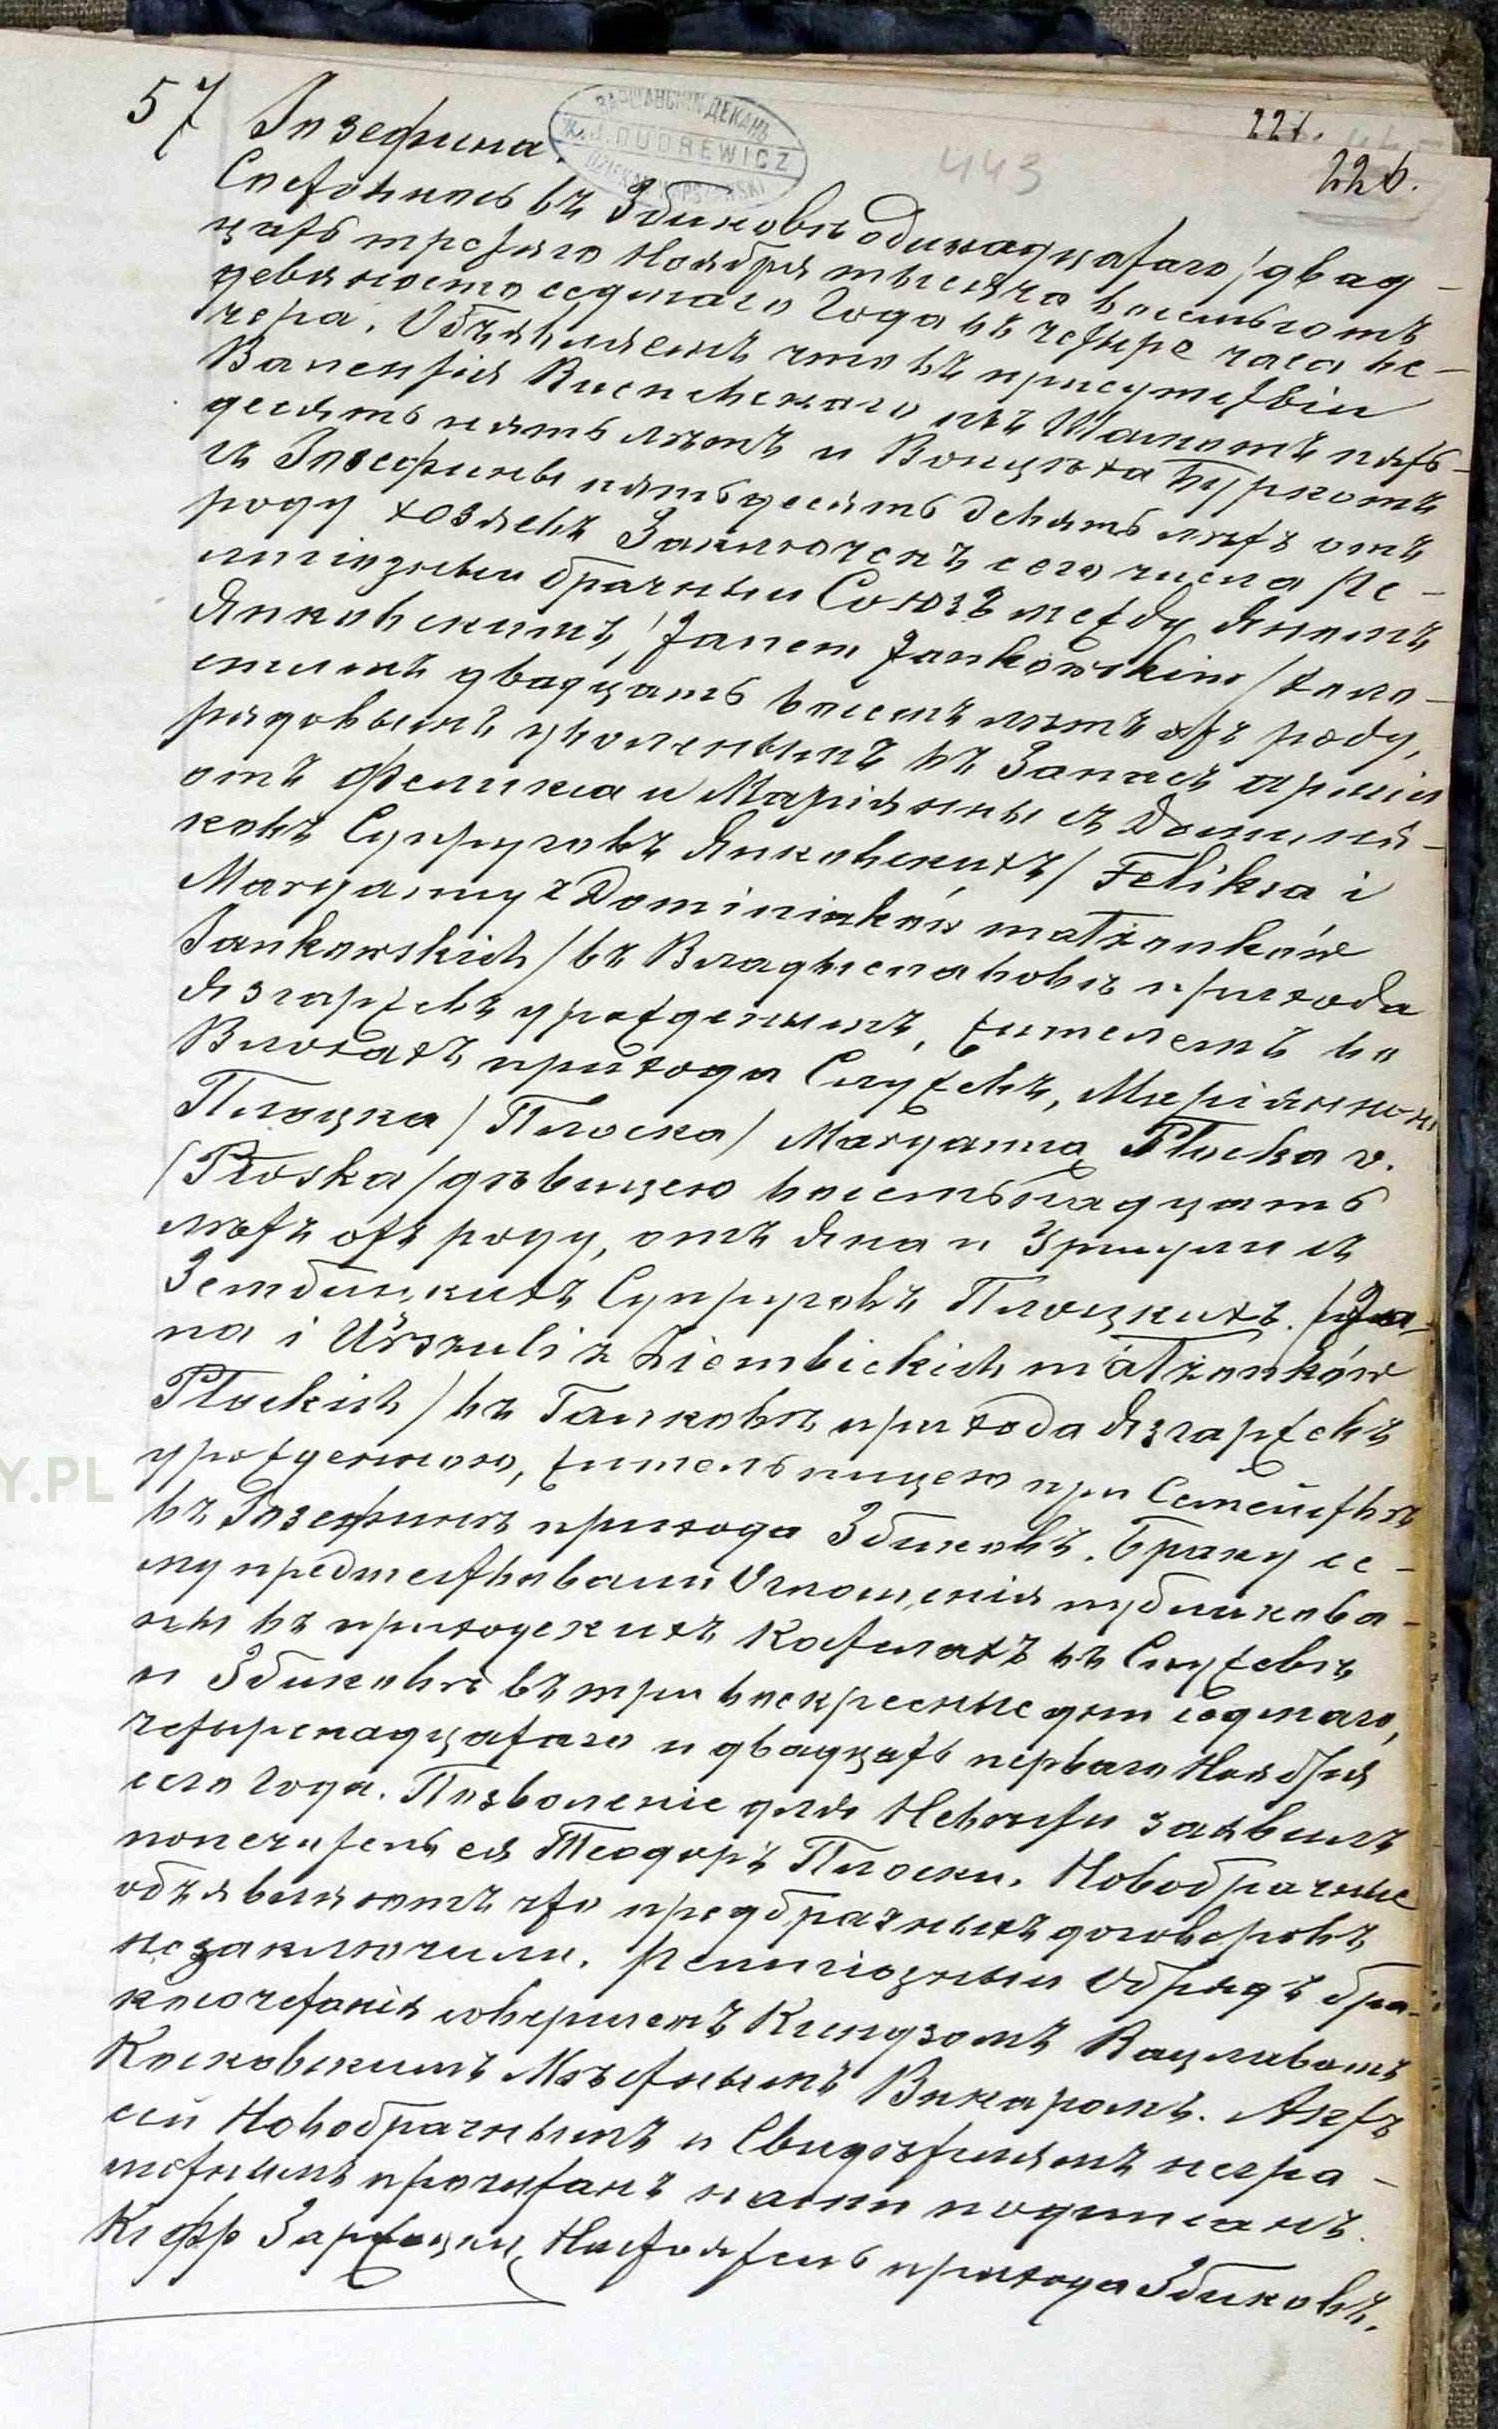 57 Іозефина.
ВАРШАВСКІЙ ДЕКАНЪ
K. J. DUDREWICZ
443
221.
226.
Состоялось въ Збиковѣ одинадцатаго / двад-
цать третяго Ноября тысяча восемьсотъ
девяносто седмаго Года въ четыре часа ве-
чера. Объявляемъ что въ присутствіи
Валентія Висневскаго изъ Шамотъ пять-
десять пять лѣтъ и Войцѣха Буркотъ
съ Іозефины пятьдесять девять лѣтъ отъ
роду хозяевъ Заключенъ сего числа Ре-
лигіозный брачный Союзъ между Яномъ
Янковскимъ, /Janem Jankowskim/ холо-
стымъ двадцать восемъ лѣтъ отъ роду,
рядовымъ уволеннымъ въ Запасъ арміи
отъ Феликса и Маріянны съ Доминя-
ковъ Супруговъ Янковскихъ / Feliksa i
Maryanny z Dominiaków małżonków
Jankowskich / въ Владыславовѣ прихода
Язгаржевъ урожденнымъ, жителемъ во
Влохахъ прихода Служевъ, Маріянною
Плоцка / Плоска / Maryanna Płocka v.
/ Płoska / дѣвицею восемьнадцать
лѣтъ отъ роду, отъ Яна и Уршули съ
Зембицкихъ Супруговъ Плоцкихъ. / Ja-
na i Urszuli z Ziembickich małżonków
Płockich / въ Галковѣ прихода Язгаржевъ
урожденною, жительницею при Семействѣ
въ Іозефинѣ прихода Збиковъ. Браку се-
му предшествовали Оглошенія публикова-
ны въ приходскихъ Костелахъ въ Служевѣ
и Збиковѣ въ три воскресные дни седмаго,
четырнадцатаго и двадцать перваго Ноября
сего Года. Позволеніе для Невѣсты заявилъ
попечитель ея Теодоръ Плоски. Новобрачные
объявляютъ что предбрачныхъ договоровъ
незаключили. Религіозный Обрядъ бра-
косочетанія совершенъ Ксендзомъ Вацлавомъ
Косковскимъ Мѣстнымъ Викаромъ. Актъ
сей Новобрачнымъ и Свидѣтелямъ негра-
мотнымъ прочитанъ нами подписанъ.
Настоятель прихода Збиковъ.
Y.PL